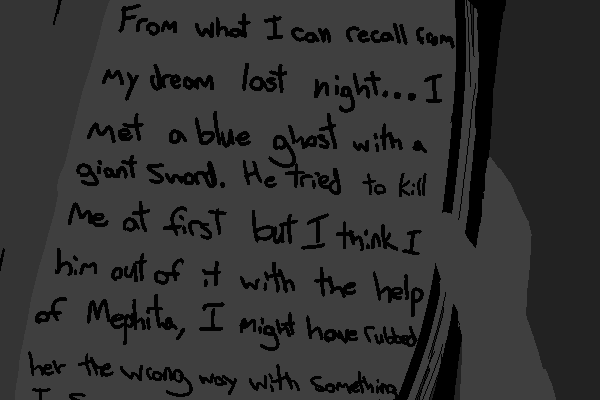 From what I can recall from
my dream last night... I
met a blue ghost with a
giant sword. He tried to kill
me at first but I think I
him out of it with the help
of Mephita, I might have rubbed
her the wrong way with something
I s